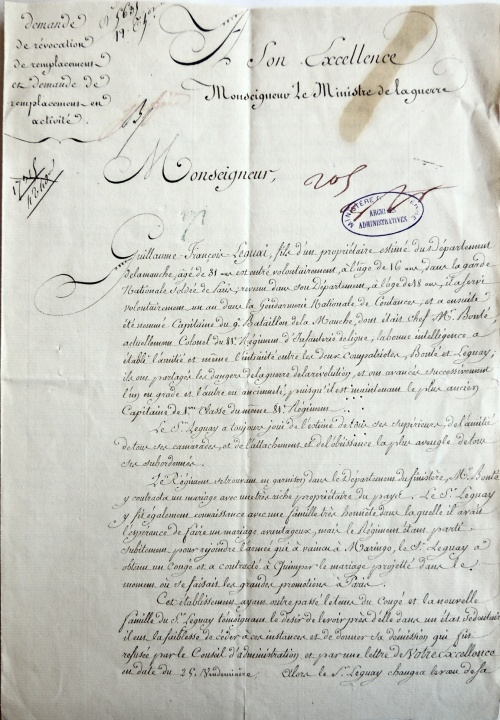 demande
de révocation
de remplacement
et demande de
remplacement en
activité.
A Son Excellence
Monseigneur Le Ministre de la guerre
Monseigneur,
205
MINISTÈRE
ARCHIVES
ADMINISTRATIVES
Guillaume François Leguai, fils d'un propriétaire estimé du Département
de la manche, agé de 31 ans est entré volontairement, à l'age de 16 ans, dans la garde
Nationale Soldée de Paris, revenu dans son Département, à l'age de 18 ans, il a servi
volontairement un an dans la Gendarmerie Nationale de Coutances, et a ensuite
été nommé Capitaine du 9e Bataillon de la Manche, dont était chef Mr. Bonté,
actuellement Colonel du 81e Régiment d'Infanterie de ligne, la bonne intelligence a
établi l'amitié et même l'intimité entre les deux compatriotes, Bonté et Léguay;
ils ont partagés les dangers de la guerre de la révolution, et ont avancés successivement
l'un en grade et l'autre en ancienneté, puisqu'il est maintenant le plus ancien
Capitaine de 1ere Classe du meme 81e Régiment . . .
Le Sr. Leguay a toujours joui de l'estime de tous ses supérieurs, de l'amitié
de tous ses camarades, et de l'attachement et de l'obéissance la plus aveugle de tous
ses subordonnés.
Le Régiment se trouvant en garnison dans le Département du finistère, Mr. Bonté
y contracta un mariage avec une très riche propriétaire du pays. Le Sr. Léguay
y fit également connaissance avec une famille très honnête dans laquelle il avait
l'espérance de faire un mariage avantageux, mais le Régiment étant parti
subitement pour rejoindre l'armée qui a vaincu à Maringo, le Sr. Leguay a
obtenu un Congé et a contracté à Quimper le mariage projetté dans le
moment où se faisait les grandes promotions à Paris.
Cet établissement ayant outre passé le tems du Congé et la nouvelle
famille du Sr. Leguay témoignant le désir de l'avoir près d'elle dans un état sédentaire
il eut la faiblesse de céder à ces instances et de donner sa démission qui fut
refusée par le Conseil d'administration et par une lettre de Votre Excellence
en date du 25 Vendemiaire. Alors le Sr. Leguay changea le vœu de sa